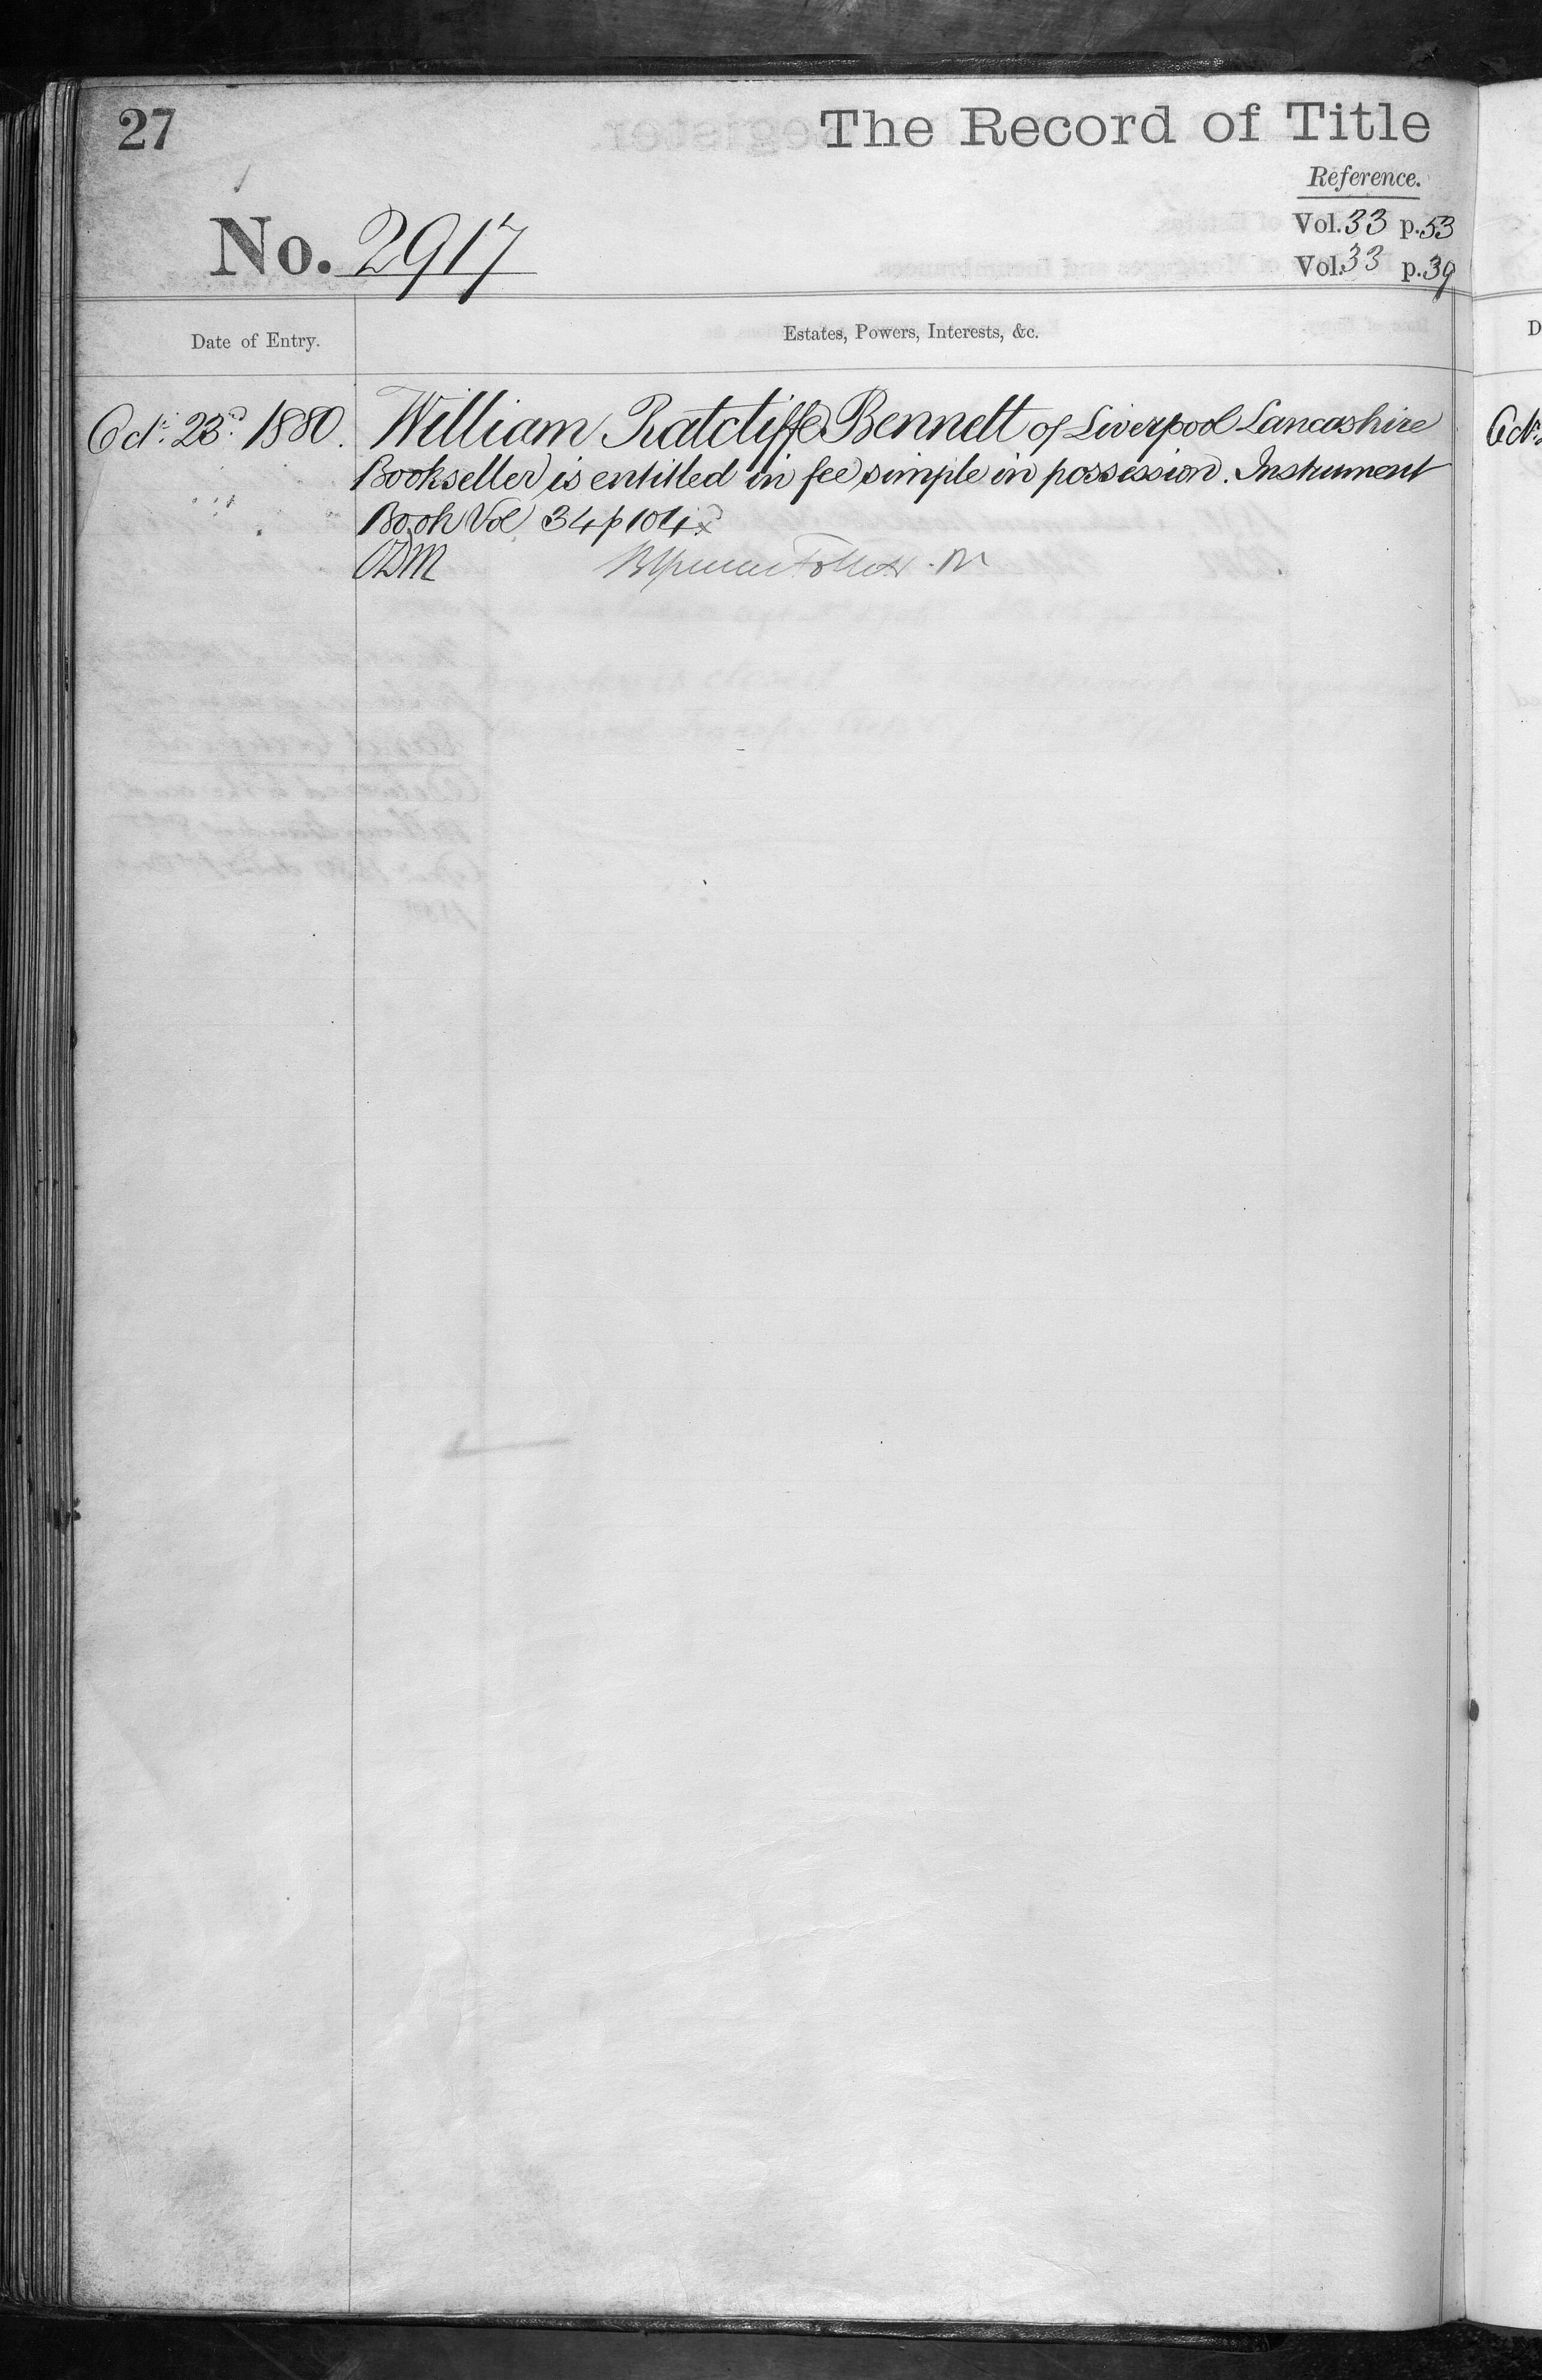 27
The Record of Title
Reference.
Vol. 33 p. 53
No. 2917
Vol. 33 p. 39
Date of Entry.
Estates, Powers, Interests, &c.
Oct. 23rd 1880. William Ratcliffe Bennett of Liverpool Lancashire
Bookseller is entitled in fee simple in possession. Instrument
Book Vol 34 p 104
Follett